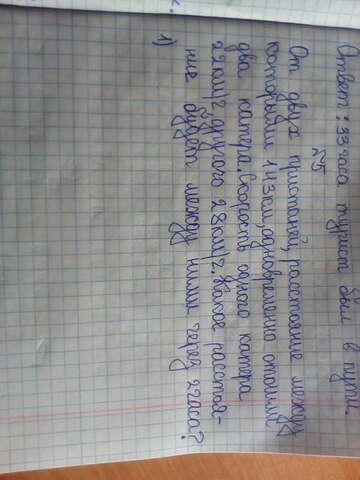 Ответ: 33 часа турист был в пути.
№5
От двух пристаней, расстояние между
которыми 143км, одновременно отошли
два катера. Скорость одного катера
22км/г другого 28км/г. Какое расстоя-
ние будет между ними через 2часа?
1)